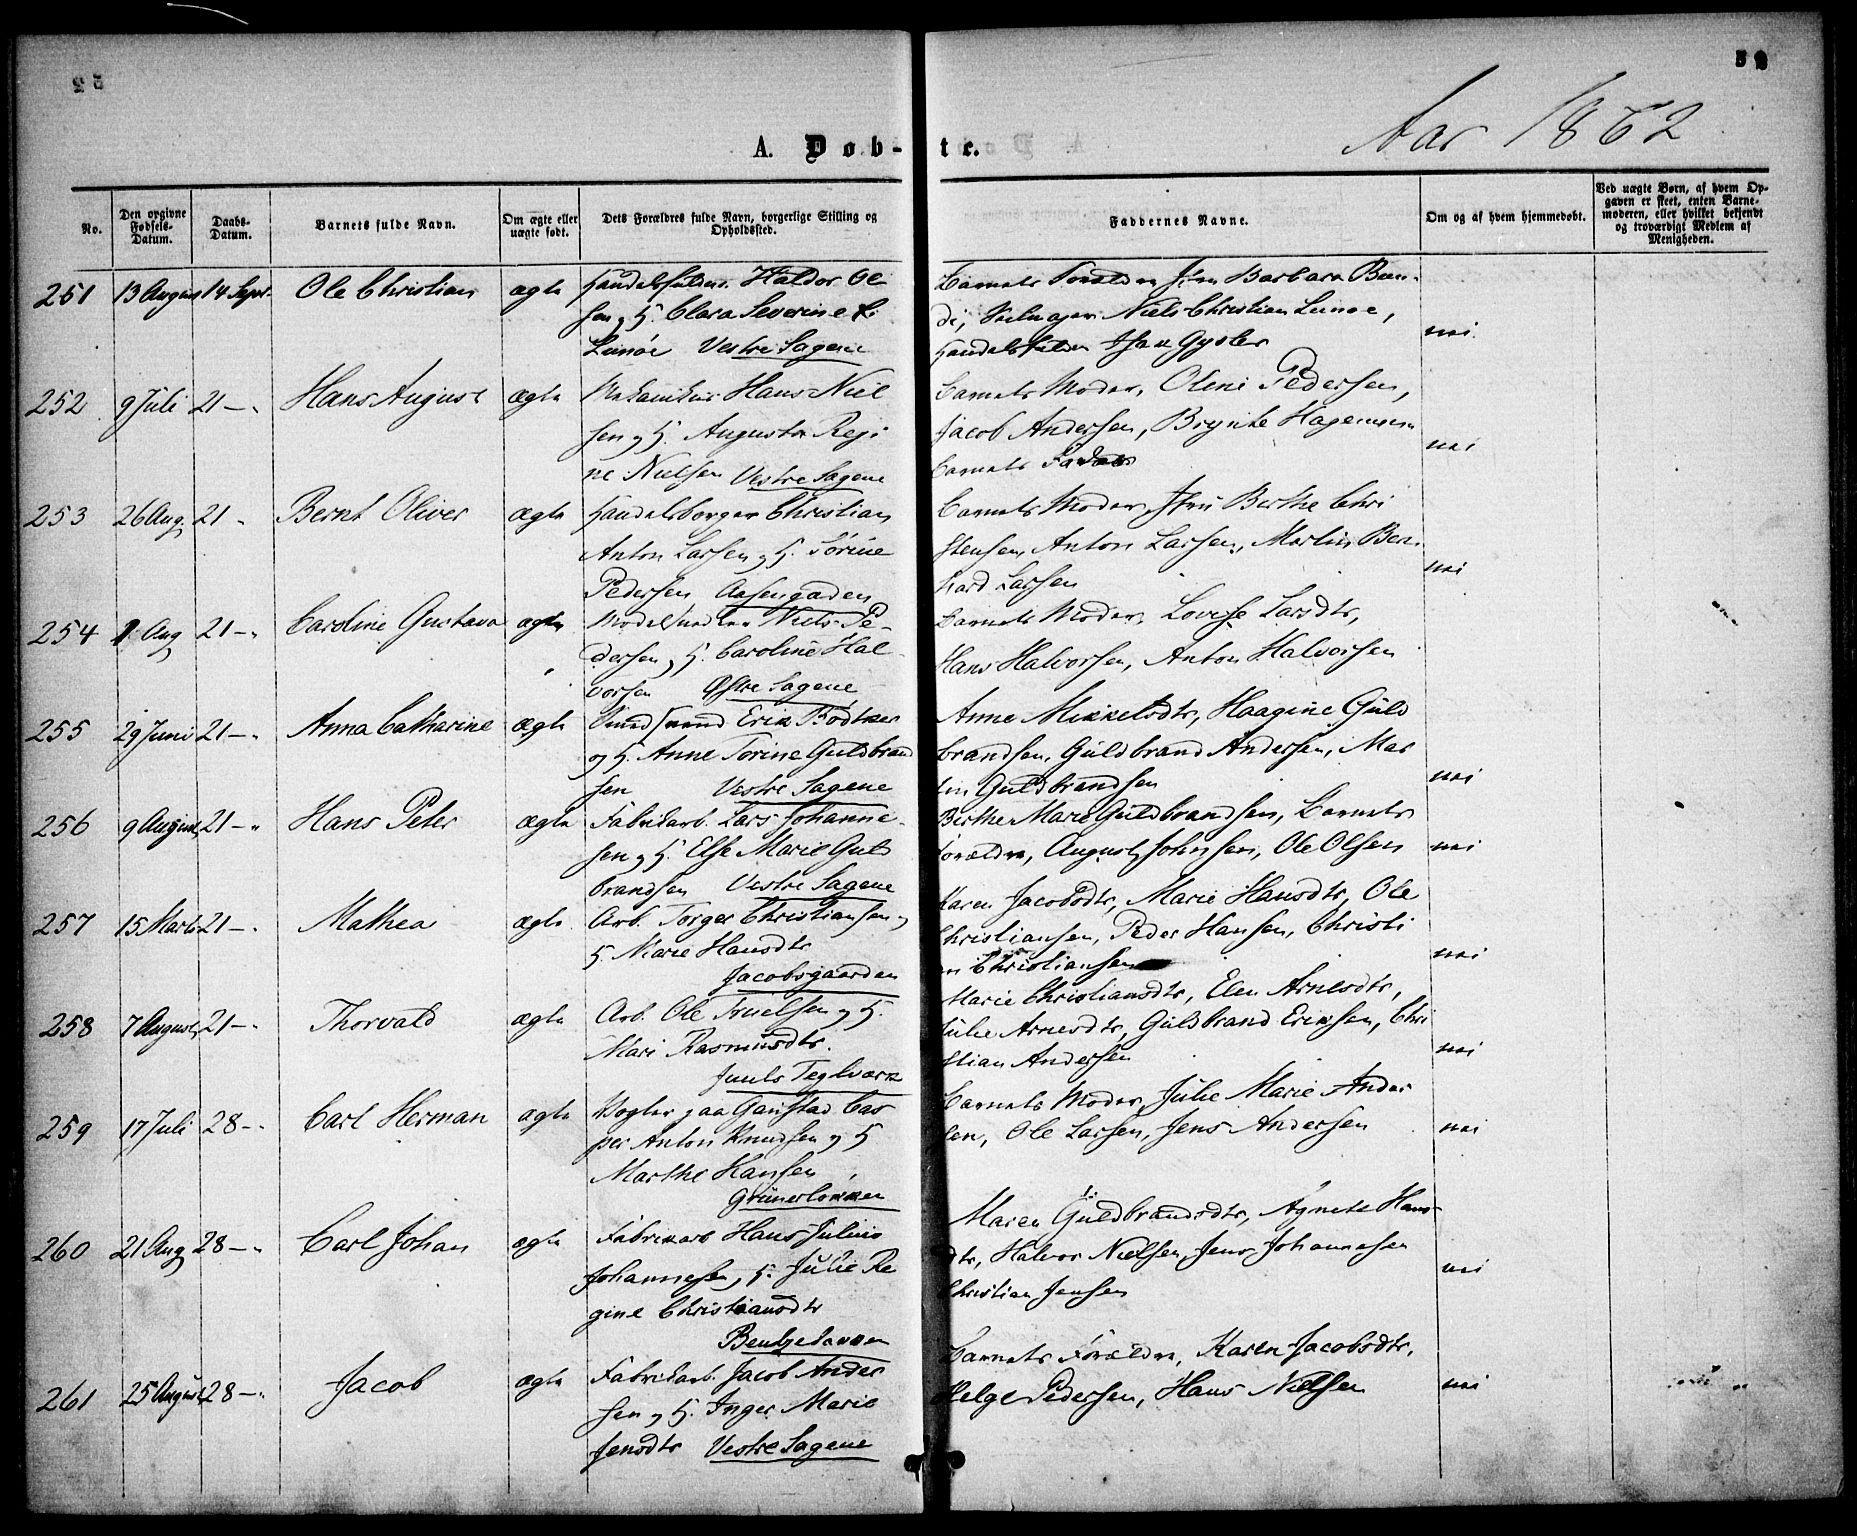 52
Aar 1862
A. Døb-te.
No.
Den opgivne Fødsels-Datum.
Daabs-Datum.
Barnets fulde Navn.
Om ægte eller uægte født.
Dets Forældres fulde Navn, borgerlige Stilling og Opholdssted.
Faddernes Navne.
Om og af hvem hjemmedøbt.
Ved uægte Børn, af hvem Opgaven er skeet, enten Barnemoderen, eller hvilket bekjendt og troværdigt Medlem af Menigheden.
251 13 August 14 Sept. Ole Christian ægte Haldor Ol
sen Clara Severine
Lunøe Vestre Sagene
Barnets Forældre Barbara Bun-
di, Niels Christian Lunøe,
Gysler nei
252 9 Juli 21 Hans August ægte Hans Niel
sen og H. Augusta Regi
ne Nielsen Vestre Sagene
Barnets Moder, Oline Pedersen,
Jacob Andersen, Hagensen
Barnets Fader nei
253 26 Aug 21 Bernt Oliver ægte Handelsborger Christian
Anton Larsen og H. Sørine
Pedersen Aasengaden
Barnets Moder, Berthe Chri
stensen, Anton Larsen, Martin Bern
hard Larsen nei
254 Aug 21 Caroline Gustava ægte Niels Pe-
dersen og H. Caroline Hal
vorsen Østre Sagene
Barnets Moder, Lovise Larsdtr,
Hans Halvorsen, Anton Halvorsen
255 29 Juni 21 Anna Catharine ægte Erik Bødtker
og H. Anne Torine Guldbrand
sen Vestre Sagene
Anne Mikkelsdtr, Haagine Guld
brandsen, Guldbrand Andersen, Mar
tin Guldbrandsen nei
256 9 August 21 Hans Peter ægte Fabrikarb. Lars Johanne-
sen og H. Else Marie Guld
brandsen Vestre Sagene
Berthe Marie Guldbrandsen, Barnets
Forældre, August Johnsen, Ole Olsen nei
257 15 Marts 21 Mathea ægte Arb. Torger Christiansen og
H. Marie Hansdtr
Jacobsgaarden
Karen Jacobsdtr, Marie Hansdtr, Ole
Christiansen, Peder Hansen, Christi
an Christiansen nei
258 7 August 21 Thorvald ægte Arb. Ole Truelsen og H.
Mari Rasmusdtr.
Juuls Teglværk
Marie Christiansdtr, Elen Arnesdtr,
Julie Arnesdtr, Guldbrand Eriksen, Chri
stian Andersen nei
259 17 Juli 28 Carl Herman ægte Vogter paa Gaustad Cas
per Anton Knudsen og H
Marthe Hansen
Grünerløkken
Barnets Moder, Julie Marie Ander
sen, Ole Larsen, Jens Andersen nei
260 21 Aug 28 Carl Johan ægte Fabrikarb Hans Julius
Johannesen, H. Julie Re
gine Christiansdtr
Maren Guldbrandsdtr, Agnete Hans-
dtr, Halvor Nielsen, Jens Johannesen
Christian Jensen nei
261 25 August 28 Jacob ægte Fabrikarb. Jacob Ander
sen og H. Inger Marie
Jensdtr Vestre Sagene
Barnets Forældre, Karen Jacobsdtr,
Helge Pedersen, Hans Nielsen nei